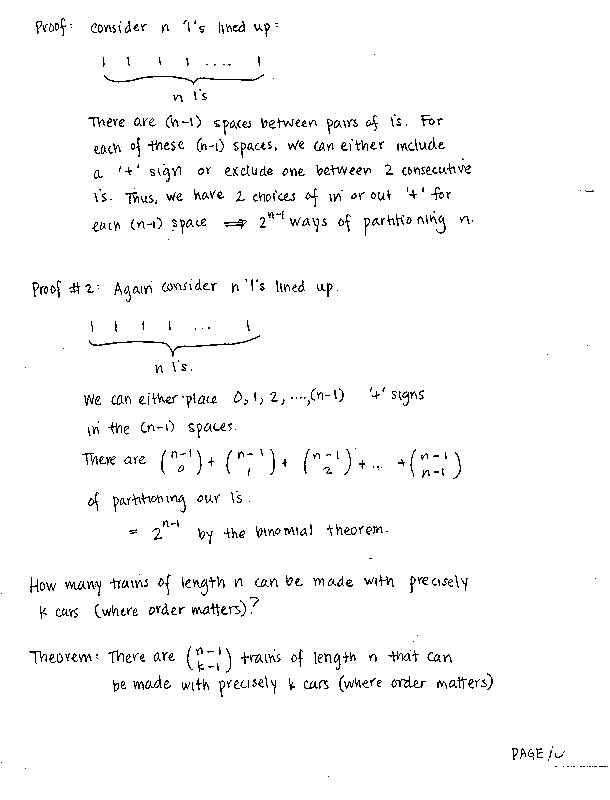 Proof: consider n '1's lined up:
1 1 1 1 .... 1
n 1's
There are (n-1) spaces between pairs of 1s. For
each of these (n-1) spaces, we can either include
a '+' sign or exclude one between 2 consecutive
1's. Thus, we have 2 choices of in or out '+' for
each (n-1) space ⟹ 2^{n-1} ways of partitioning n.
Proof #2: Again consider n '1's lined up.
1 1 1 1 ... 1
n 1's.
We can either place 0, 1, 2, ...., (n-1) '+' signs
in the (n-1) spaces.
There are (n-1 0) + (n-1 1) + (n-1 2) + ... + (n-1 n-1)
of partitioning our 1s.
= 2^{n-1} by the binomial theorem.
How many trains of length n can be made with precisely
k cars (where order matters)?
Theorem: There are (n-1 k-1) trains of length n that can
be made with precisely k cars (where order matters)
PAGE